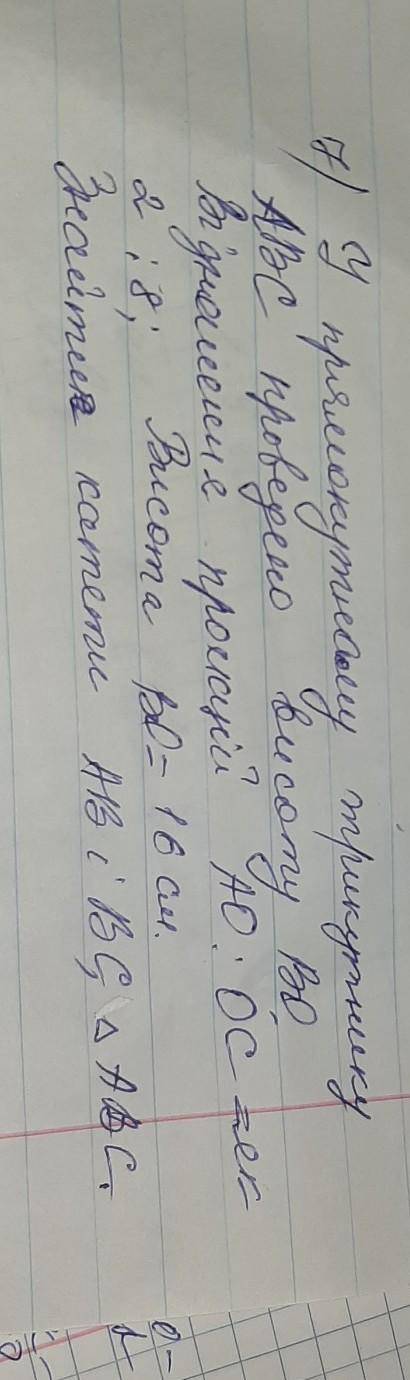 7/ У прямокутному трикутнику
ABC проведено висоту BO
Відношення проекцій AO : OC = як
2 : 8; Висота BO = 16 см.
Знайти катети AB і BC, △ ABC.